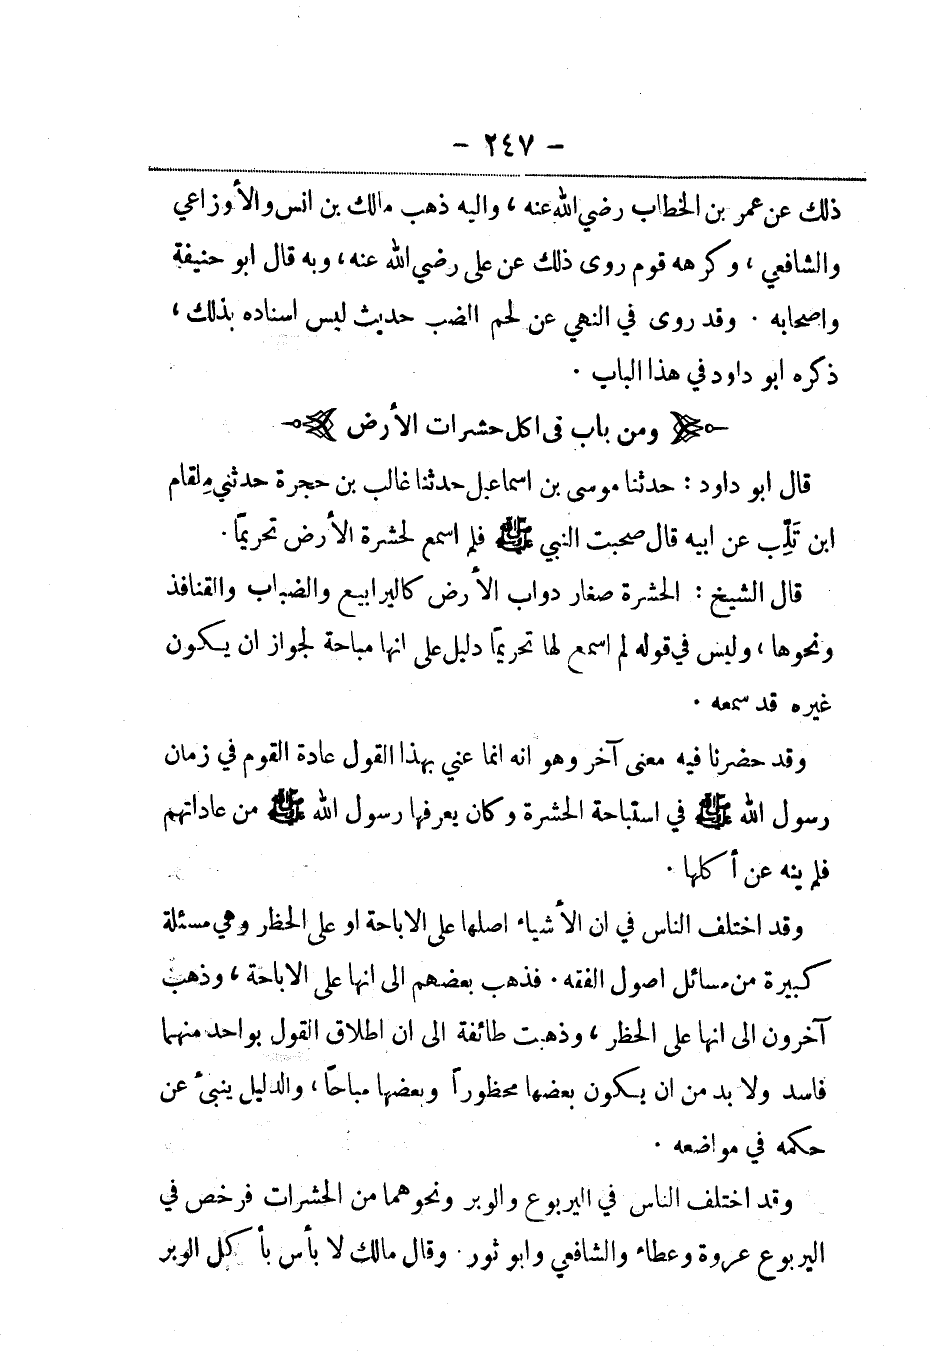 - ٢٤٧ -
ذلك عن عمر بن الخطاب رضي الله عنه ، واليه ذهب مالك بن انس والأوزاعي
والشافعي ، وكرهه قوم روى ذلك عن على رضي الله عنه ، وبه قال ابو حنيفة
واصحابه . وقد روى في النهي عن لحم الضب حديث ليس اسناده بذلك ،
ذكره ابو داود في هذا الباب .
ومن باب فى اكل حشرات الأرض
قال ابو داود : حدثنا موسى بن اسماعيل حدثنا غالب بن حجرة حدثني مِلقام
ابن تَلِّب عن ابيه قال صحبت النبي ﷺ فلم اسمع لحشرة الأرض تحريمًا .
قال الشيخ : الحشرة صغار دواب الأرض كاليرابيع والضباب والقنافذ
ونحوها ، وليس في قوله لم اسمع لها تحريمًا دليل على انها مباحة لجواز ان يكون
غيره قد سمعه .
وقد حضرنا فيه معنى آخر وهو انه انما عني بهذا القول عادة القوم في زمان
رسول الله ﷺ في استباحة الحشرة وكان يعرفها رسول الله ﷺ من عاداتهم
فلم ينه عن أكلها .
وقد اختلف الناس في ان الأشياء اصلها على الاباحة او على الحظر وهي مسئلة
كبيرة من مسائل اصول الفقه . فذهب بعضهم الى انها على الاباحة ، وذهب
آخرون الى انها على الحظر ، وذهبت طائفة الى ان اطلاق القول بواحد منهما
فاسد ولا بد من ان يكون بعضها محظوراً وبعضها مباحًا ، والدليل ينبئ عن
حكمه في مواضعه .
وقد اختلف الناس في اليربوع والوبر ونحوهما من الحشرات فرخص في
اليربوع عروة وعطاء والشافعي وابو ثور . وقال مالك لا بأس بأكل الوبر